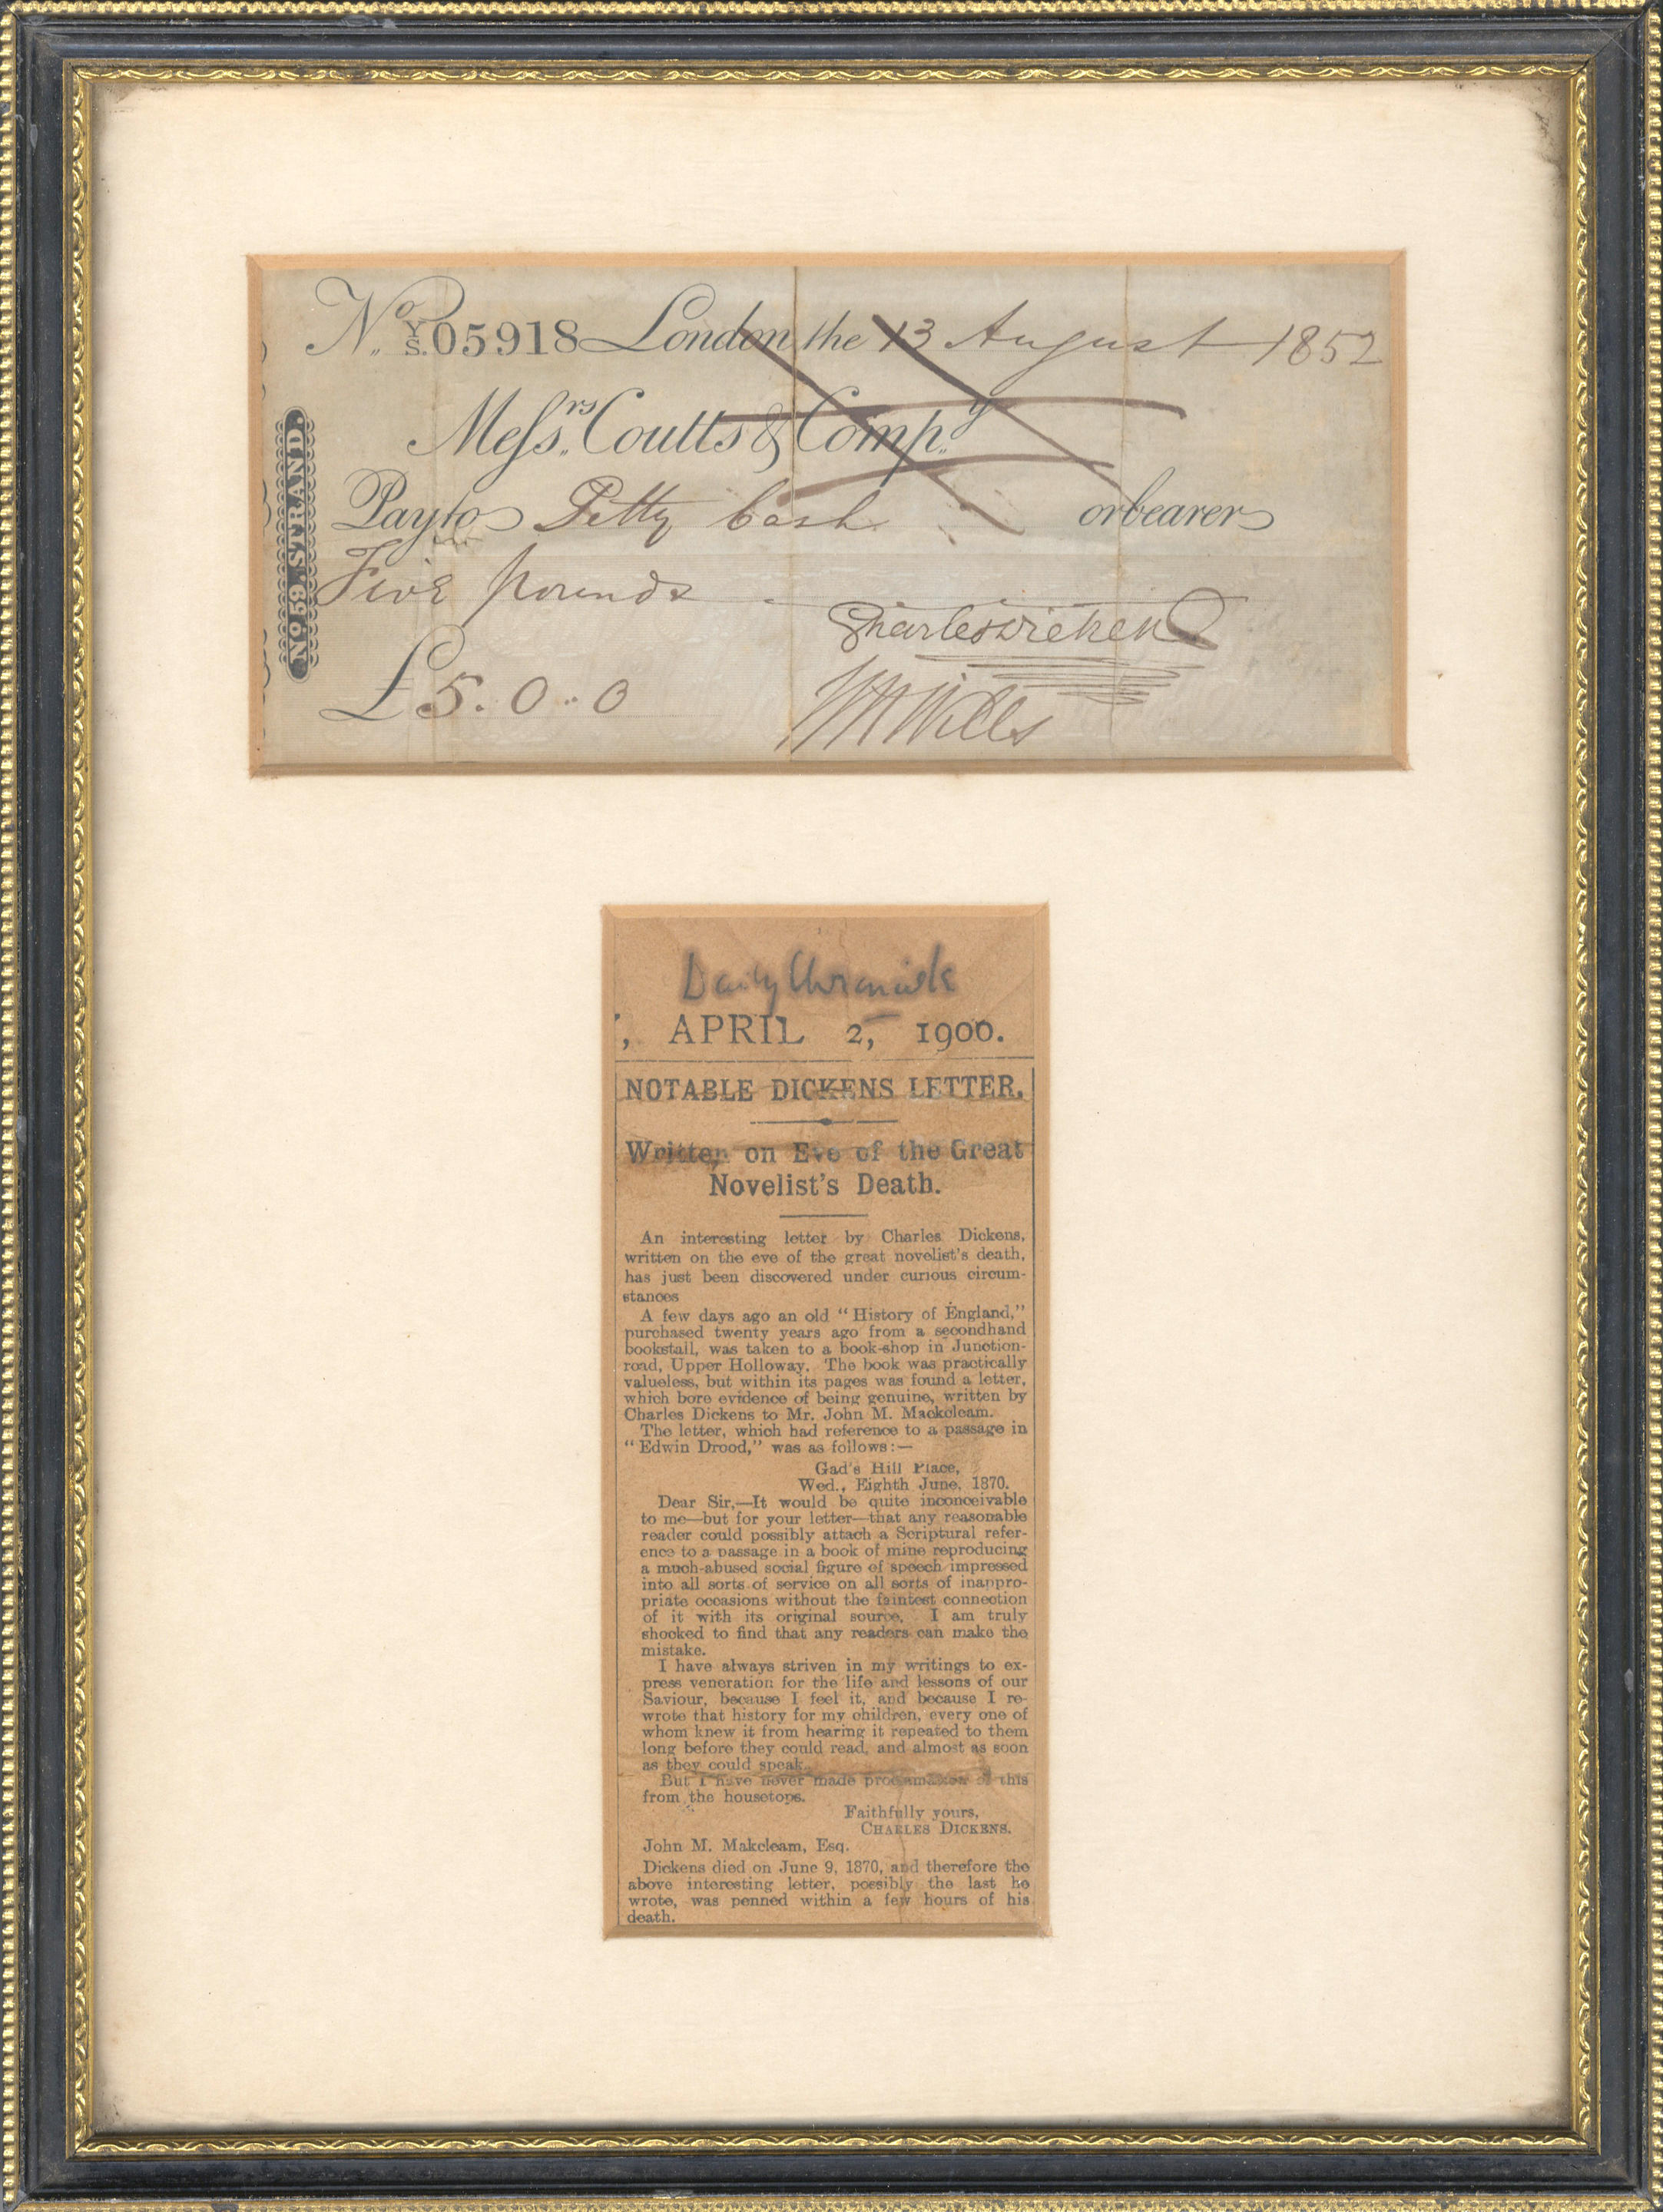 No. Y/S. 05918 London the 13 August 1852
Messrs. Coutts & Compy.
No. 59, STRAND.
Pay to Petty Cash or bearer
Five pounds
Charles Dickens
£5.0.0
W H Wills
Daily Chronicle
, APRIL 2, 1900.
NOTABLE DICKENS LETTER.
Written on Eve of the Great
Novelist's Death.
An interesting letter by Charles Dickens,
written on the eve of the great novelist's death,
has just been discovered under curious circum-
stances
A few days ago an old "History of England,"
purchased twenty years ago from a secondhand
bookstall, was taken to a book-shop in Junction-
road, Upper Holloway. The book was practically
valueless, but within its pages was found a letter,
which bore evidence of being genuine, written by
Charles Dickens to Mr. John M. Mackcleam.
The letter, which had reference to a passage in
"Edwin Drood," was as follows:—
Gad's Hill Place,
Wed., Eighth June, 1870.
Dear Sir,—It would be quite inconceivable
to me—but for your letter—that any reasonable
reader could possibly attach a Scriptural refer-
ence to a passage in a book of mine reproducing
a much-abused social figure of speech impressed
into all sorts of service on all sorts of inappro-
priate occasions without the faintest connection
of it with its original source. I am truly
shocked to find that any readers can make the
mistake.
I have always striven in my writings to ex-
press veneration for the life and lessons of our
Saviour, because I feel it, and because I re-
wrote that history for my children, every one of
whom knew it from hearing it repeated to them
long before they could read, and almost as soon
as they could speak.
But I have never made proclamation of this
from the housetops.
Faithfully yours,
CHARLES DICKENS.
John M. Makcleam, Esq.
Dickens died on June 9, 1870, and therefore the
above interesting letter, possibly the last he
wrote, was penned within a few hours of his
death.